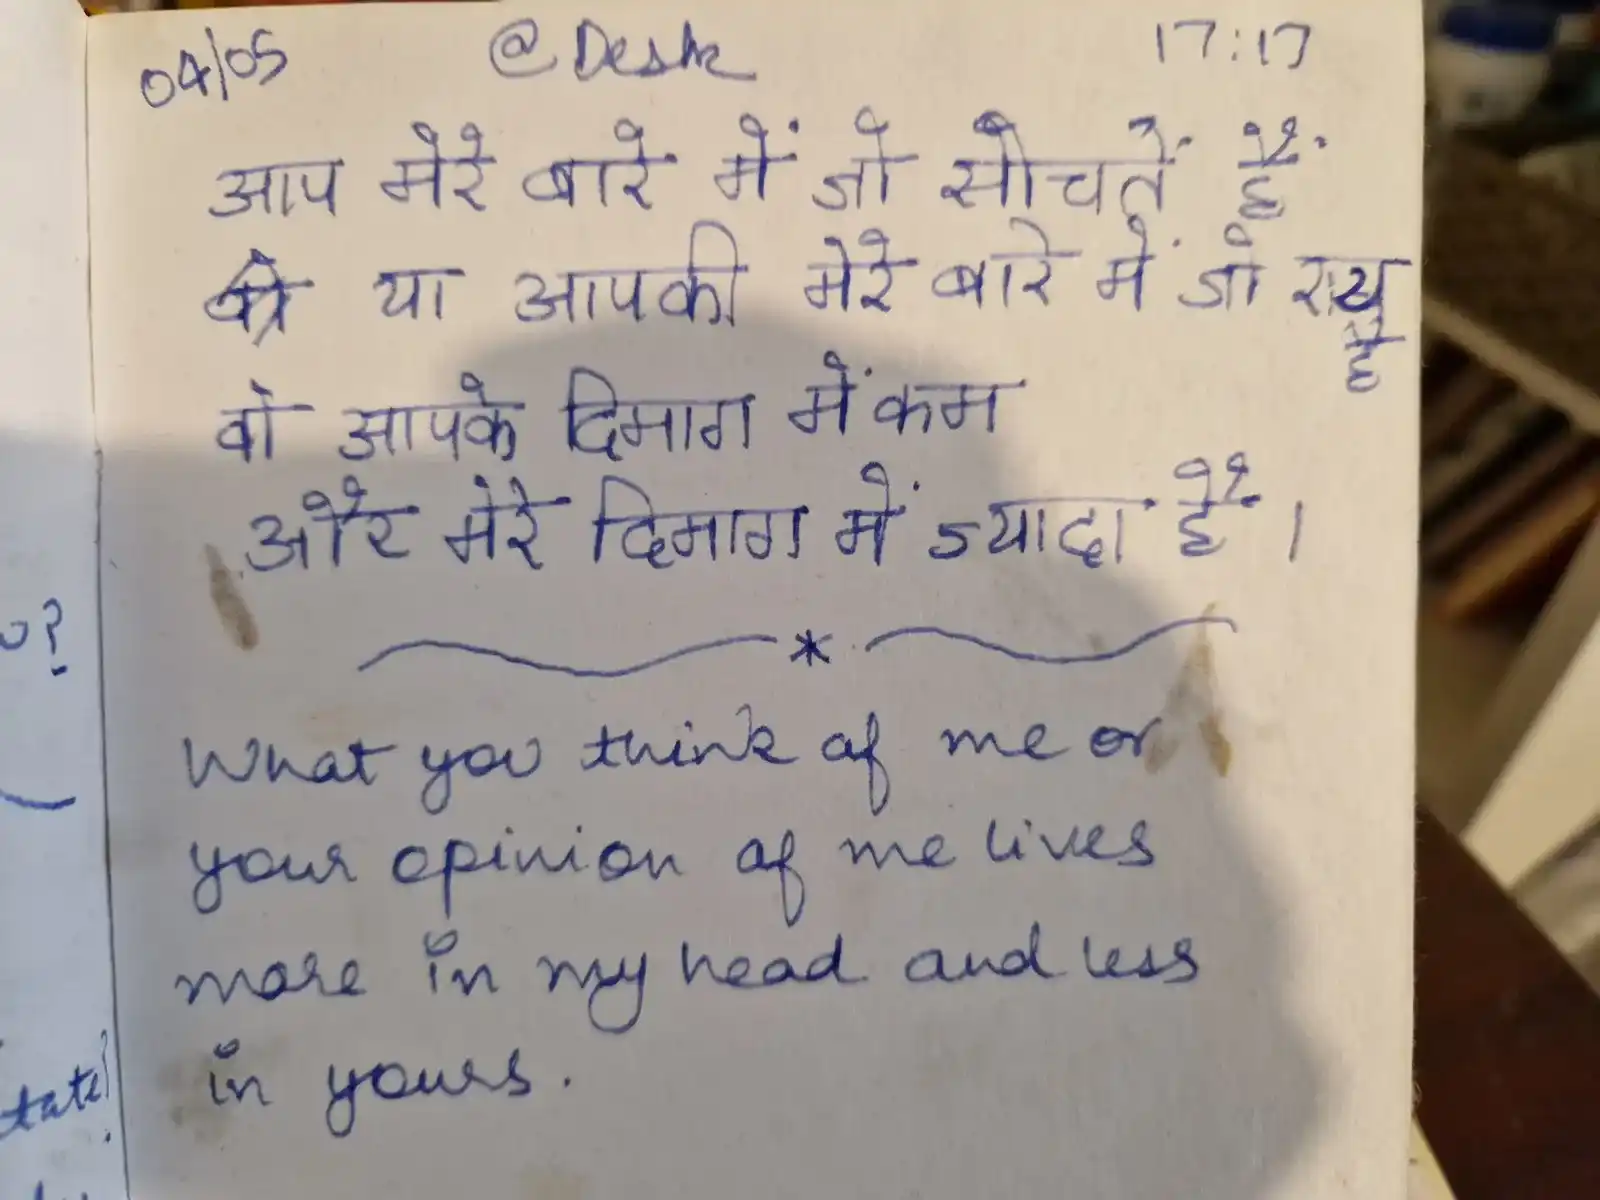 04/05 @Desk 17:17
आप मेरे बारे में जो सोचतें हैं
या आपकी मेरे बारे में जो राय
है
वो आपके दिमाग में कम
और मेरे दिमाग में ज्यादा है।
*
What you think of me or
your opinion of me lives
more in my head and less
in yours.
?
tate?